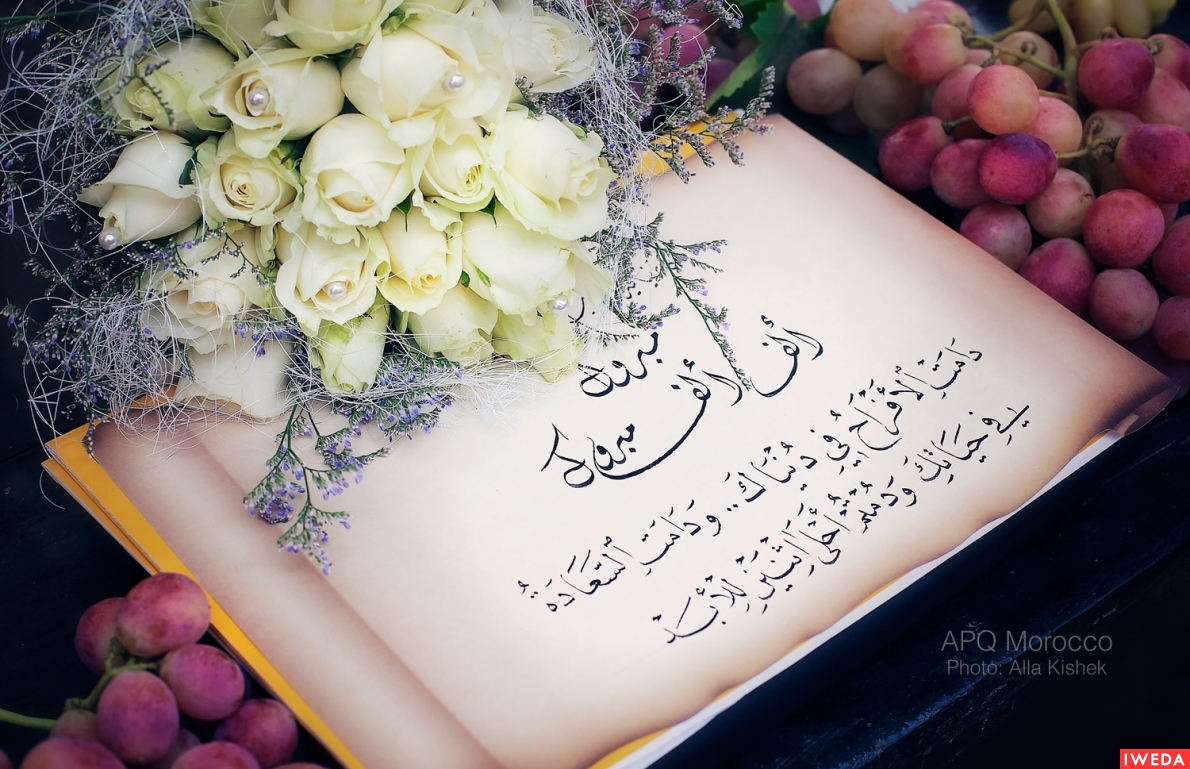 ألف
مبروك
ألف
مبروك
دَامَتْ الأَفْرَاحُ فِي دُنْيَاكَ.. وَدَامَتْ السَّعَادَةُ
فِي حَيَاتِكَ وَدُمْتُمْ أَحْلَى اثْنَيْنِ لِلأَبَدْ
APQ Morocco
Photo: Alla Kishek
IWEDA